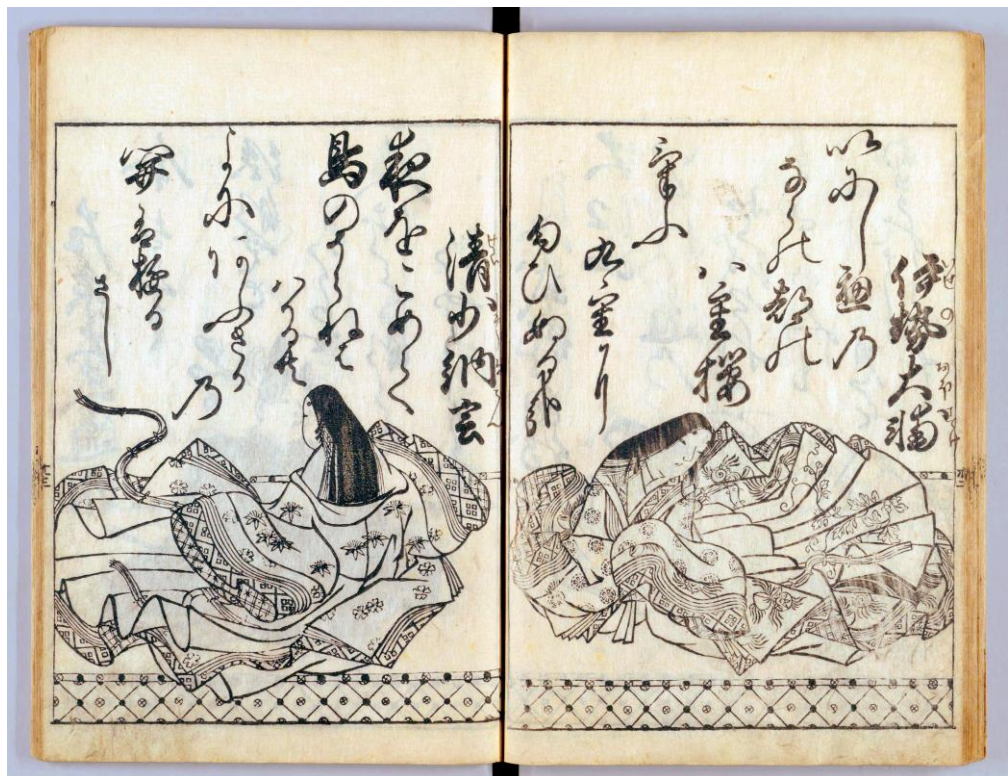 伊勢大輔
いにし遍乃
ならの都の
八重桜
けふ
九重に
匂ひぬる哉
清少納言
夜をこめて
鳥のそらねは
はかる共
よにあふさか乃
関はゆる
さし